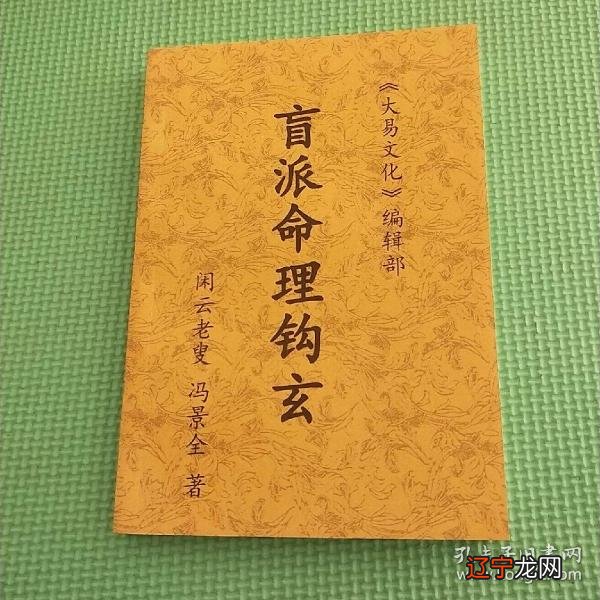 《大易文化》编辑部
盲派命理钩玄
闲云老叟 冯景全 著
孔夫子旧书网
辽宁龙网